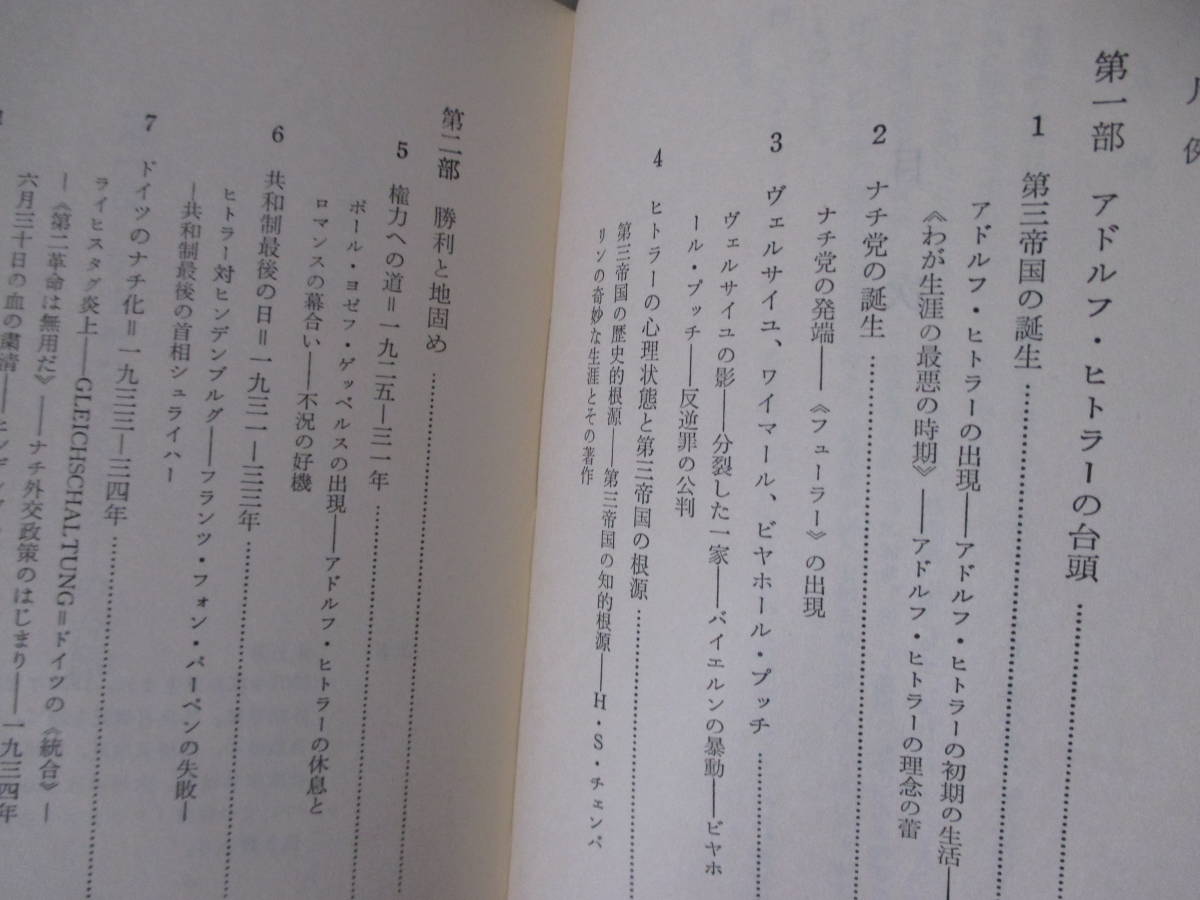 凡例
第一部 アドルフ・ヒトラーの台頭…………
1 第三帝国の誕生…………
アドルフ・ヒトラーの出現——アドルフ・ヒトラーの初期の生活——
《わが生涯の最悪の時期》——アドルフ・ヒトラーの理念の蕾
2 ナチ党の誕生…………
ナチ党の発端——《フューラー》の出現
3 ヴェルサイユ、ワイマール、ビヤホール・プッチ…………
ヴェルサイユの影——分裂した一家——バイエルンの暴動——ビヤホ
ール・プッチ——反逆罪の公判
4 ヒトラーの心理状態と第三帝国の根源…………
第三帝国の歴史的根源——第三帝国の知的根源——H・S・チェンバ
リンの奇妙な生涯とその著作
第二部 勝利と地固め…………
5 権力への道=一九二五—三一年…………
ポール・ヨゼフ・ゲッベルスの出現——アドルフ・ヒトラーの休息と
ロマンスの幕合い——不況の好機
6 共和制最後の日=一九三一—三三年…………
ヒトラー対ヒンデンブルグ——フランツ・フォン・パーペンの失敗—
—共和制最後の首相シュライハー
7 ドイツのナチ化=一九三三—三四年…………
ライヒスタグ炎上——GLEICHSCHALTUNG=ドイツの《統合》—
—《第二革命は無用だ》——ナチ外交政策のはじまり——一九三四年
六月三十日の血の粛清——